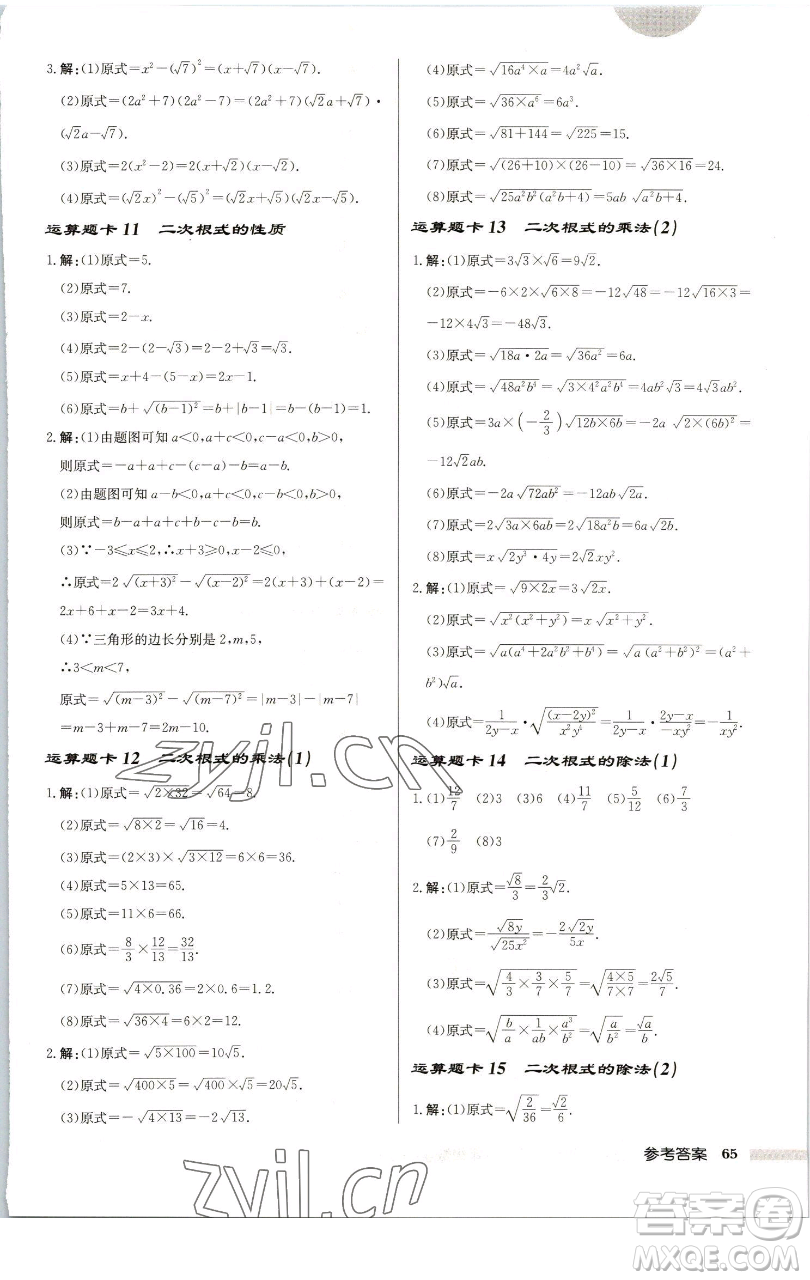 3.解:(1)原式=x²-(√7)²=(x+√7)(x-√7).
(2)原式=(2a²+7)(2a²-7)=(2a²+7)(√2a+√7)·
(√2a-√7).
(3)原式=2(x²-2)=2(x+√2)(x-√2).
(4)原式=(√2x)²-(√5)²=(√2x+√5)(√2x-√5).
运算题卡 11 二次根式的性质
1.解:(1)原式=5.
(2)原式=7.
(3)原式=2-x.
(4)原式=2-(2-√3)=2-2+√3=√3.
(5)原式=x+4-(5-x)=2x-1.
(6)原式=b+√((b-1)²)=b+|b-1|=b+1-b=1.
2.解:(1)由题图可知 a<0,a+c<0,c-a<0,b>0,
则原式=-a+a+c-(c-a)-b=a-b.
(2)由题图可知 a-b<0,a+c<0,b-c>0,b>0,
则原式=b-a+a+c+b-c-b=b.
(3)∵-3≤x≤2,∴x+3≥0,x-2≤0,
∴原式=2√((x+3)²)-√((x-2)²)=2(x+3)+(x-2)=
2x+6+x-2=3x+4.
(4)∵三角形的边长分别是 2,m,5,
∴3<m<7,
原式=√((m-3)²)-√((m-7)²)=|m-3|-|m-7|
=m-3+m-7=2m-10.
运算题卡 12 二次根式的乘法(1)
1.解:(1)原式=√(2×32)=√64=8.
(2)原式=√(8×2)=√16=4.
(3)原式=(2×3)×√(3×12)=6×6=36.
(4)原式=5×13=65.
(5)原式=11×6=66.
(6)原式=8/3×12/13=32/13.
(7)原式=√(4×0.36)=2×0.6=1.2.
(8)原式=√(36×4)=6×2=12.
2.解:(1)原式=√(5×100)=10√5.
(2)原式=√(400×5)=√400×√5=20√5.
(3)原式=-√(4×13)=-2√13.
(4)原式=√(16a⁴×a)=4a²√a.
(5)原式=√(36×a⁶)=6a³.
(6)原式=√(81+144)=√225=15.
(7)原式=√((26+10)×(26-10))=√(36×16)=24.
(8)原式=√(25a²b²(a²b+4))=5ab√(a²b+4).
运算题卡 13 二次根式的乘法(2)
1.解:(1)原式=3√3×√6=9√2.
(2)原式=-6×2×√(6×8)=-12√48=-12√(16×3)=
-12×4√3=-48√3.
(3)原式=√(18a·2a)=√(36a²)=6a.
(4)原式=√(48a²b⁴)=√(3×4²a²b⁴)=4ab²√3=4√3ab².
(5)原式=3a×(-2/3)√(12b×6b)=-2a√(2×(6b)²)=
-12√2ab.
(6)原式=-2a√(72ab²)=-12ab√(2a).
(7)原式=2√(3a×6ab)=2√(18a²b)=6a√(2b).
(8)原式=x√(2y³·4y)=2√2xy².
2.解:(1)原式=√(9×2x)=3√(2x).
(2)原式=√(x²(x²+y²))=x√(x²+y²).
(3)原式=√(a(a⁴+2a²b²+b⁴))=√(a(a²+b²)²)=(a²+
b²)√a.
(4)原式=1/(2y-x)·√((x-2y)²/(x²y⁴))=1/(2y-x)·(2y-x)/(-xy²)=-1/(xy²).
运算题卡 14 二次根式的除法(1)
1.(1)12/7 (2)3 (3)6 (4)11/7 (5)5/12 (6)7/3
(7)2/9 (8)3
2.解:(1)原式=√8/3=2/3√2.
(2)原式=√(8y)/√(25x²)=-2√(2y)/5x.
(3)原式=√(4/3×3/7×5/7)=√((4×5)/(7×7))=2√5/7.
(4)原式=√(b/a×1/ab×a³/b)=√(a/b)=√(ab)/b.
运算题卡 15 二次根式的除法(2)
1.解:(1)原式=√(2/36)=√2/6.
参考答案 65
zyjl.cn
zyjl.cn
答案卷
MXQE.COM